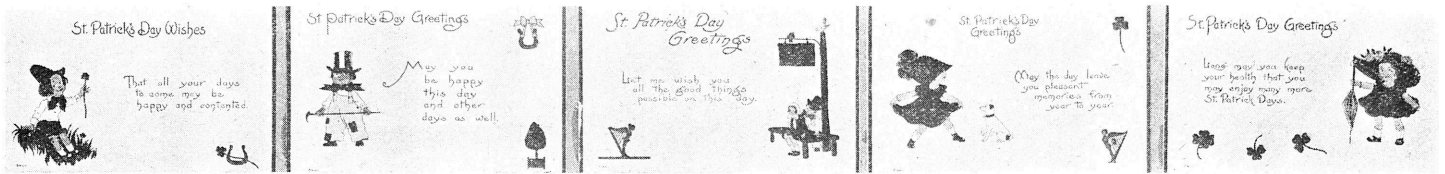 St. Patrick's Day Wishes
That all your days
to come may be
happy and contented.
St Patrick's Day Greetings
May you
be happy
this day
and other
days as well.
St. Patrick's Day
Greetings
Let me wish you
all the good things
possible on this day.
St. Patrick's Day
Greetings
May the day leave
you pleasant
memories from
year to year.
St. Patrick's Day Greetings
Long may you keep
your health that you
may enjoy many more
St. Patrick Days.